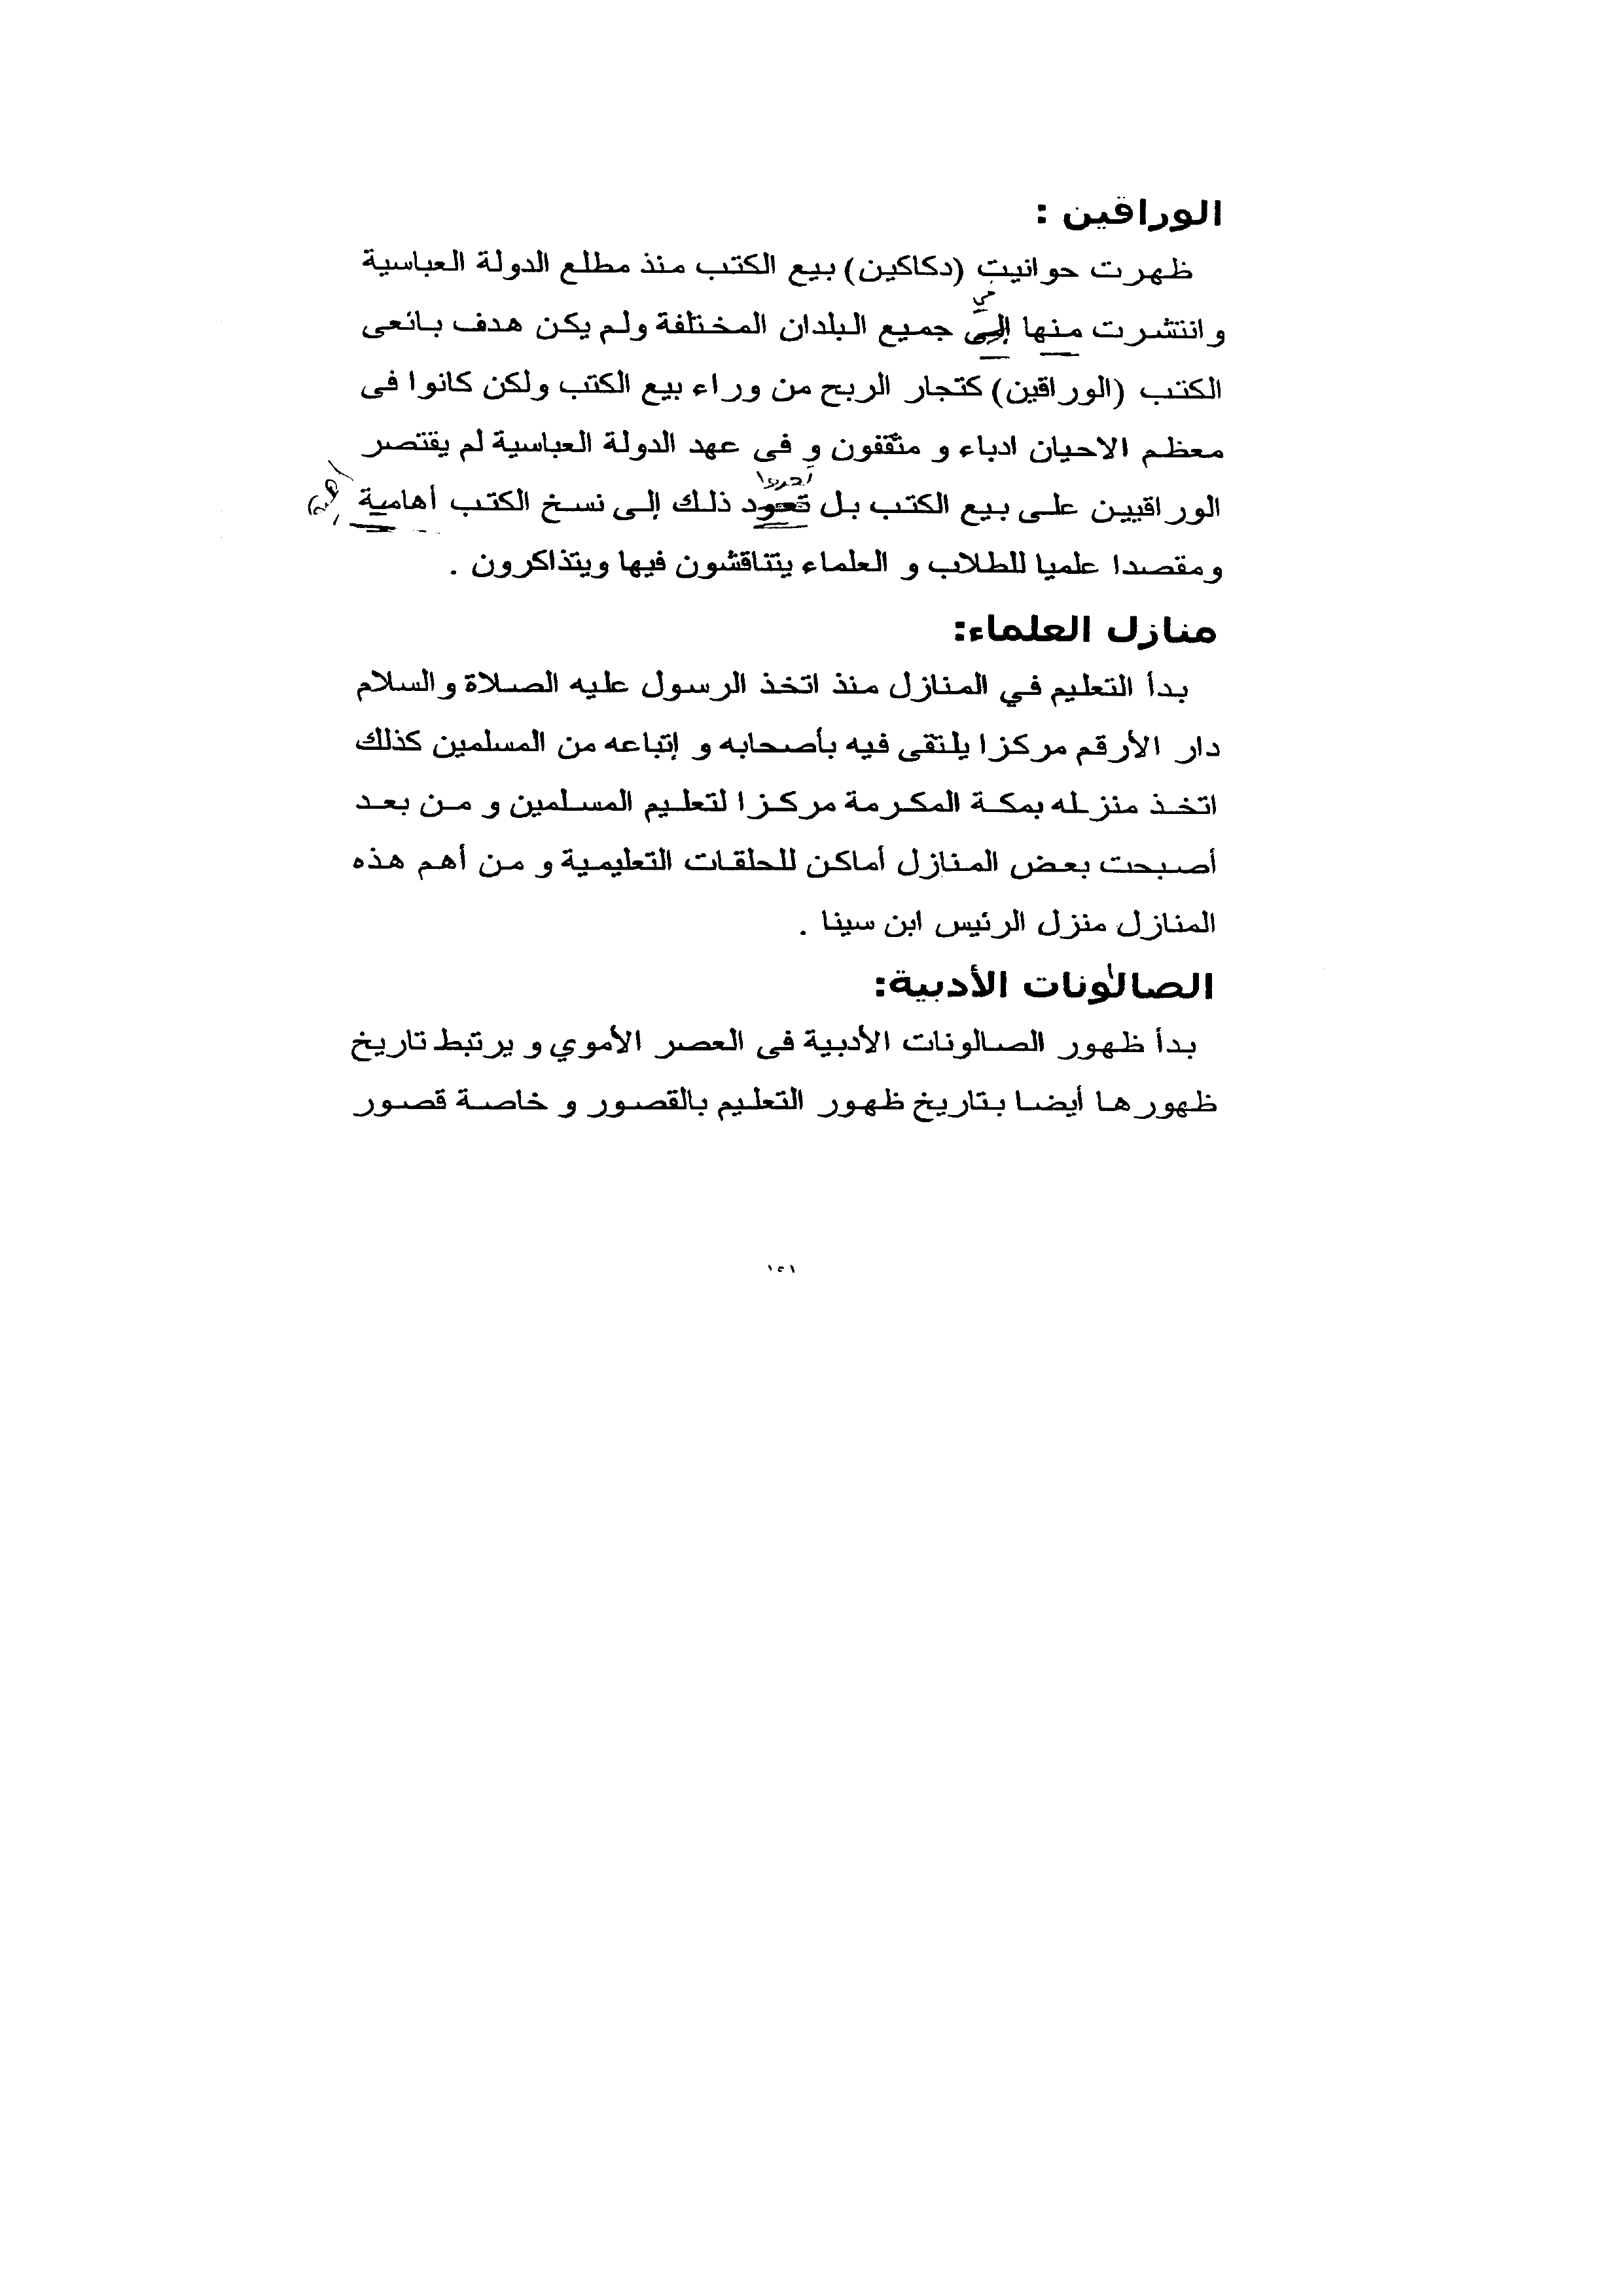 الوراقين :
ظهرت حوانيت (دكاكين) بيع الكتب منذ مطلع الدولة العباسية
في
وانتشرت منها إلى جميع البلدان المختلفة ولم يكن هدف بائعى
الكتب (الوراقين) كتجار الربح من وراء بيع الكتب ولكن كانوا فى
معظم الاحيان ادباء و مثقفون و فى عهد الدولة العباسية لم يقتصر
الوراقيين على بيع الكتب بل تعود ذلك إلى نسخ الكتب أهامية
ومقصدا علميا للطلاب و العلماء يتناقشون فيها ويتذاكرون .
منازل العلماء:
بدأ التعليم في المنازل منذ اتخذ الرسول عليه الصلاة والسلام
دار الأرقم مركزا يلتقى فيه بأصحابه و إتباعه من المسلمين كذلك
اتخذ منزله بمكة المكرمة مركزا لتعليم المسلمين و من بعد
أصبحت بعض المنازل أماكن للحلقات التعليمية و من أهم هذه
المنازل منزل الرئيس ابن سينا .
الصالونات الأدبية:
بدأ ظهور الصالونات الأدبية فى العصر الأموي و يرتبط تاريخ
ظهورها أيضا بتاريخ ظهور التعليم بالقصور و خاصة قصور